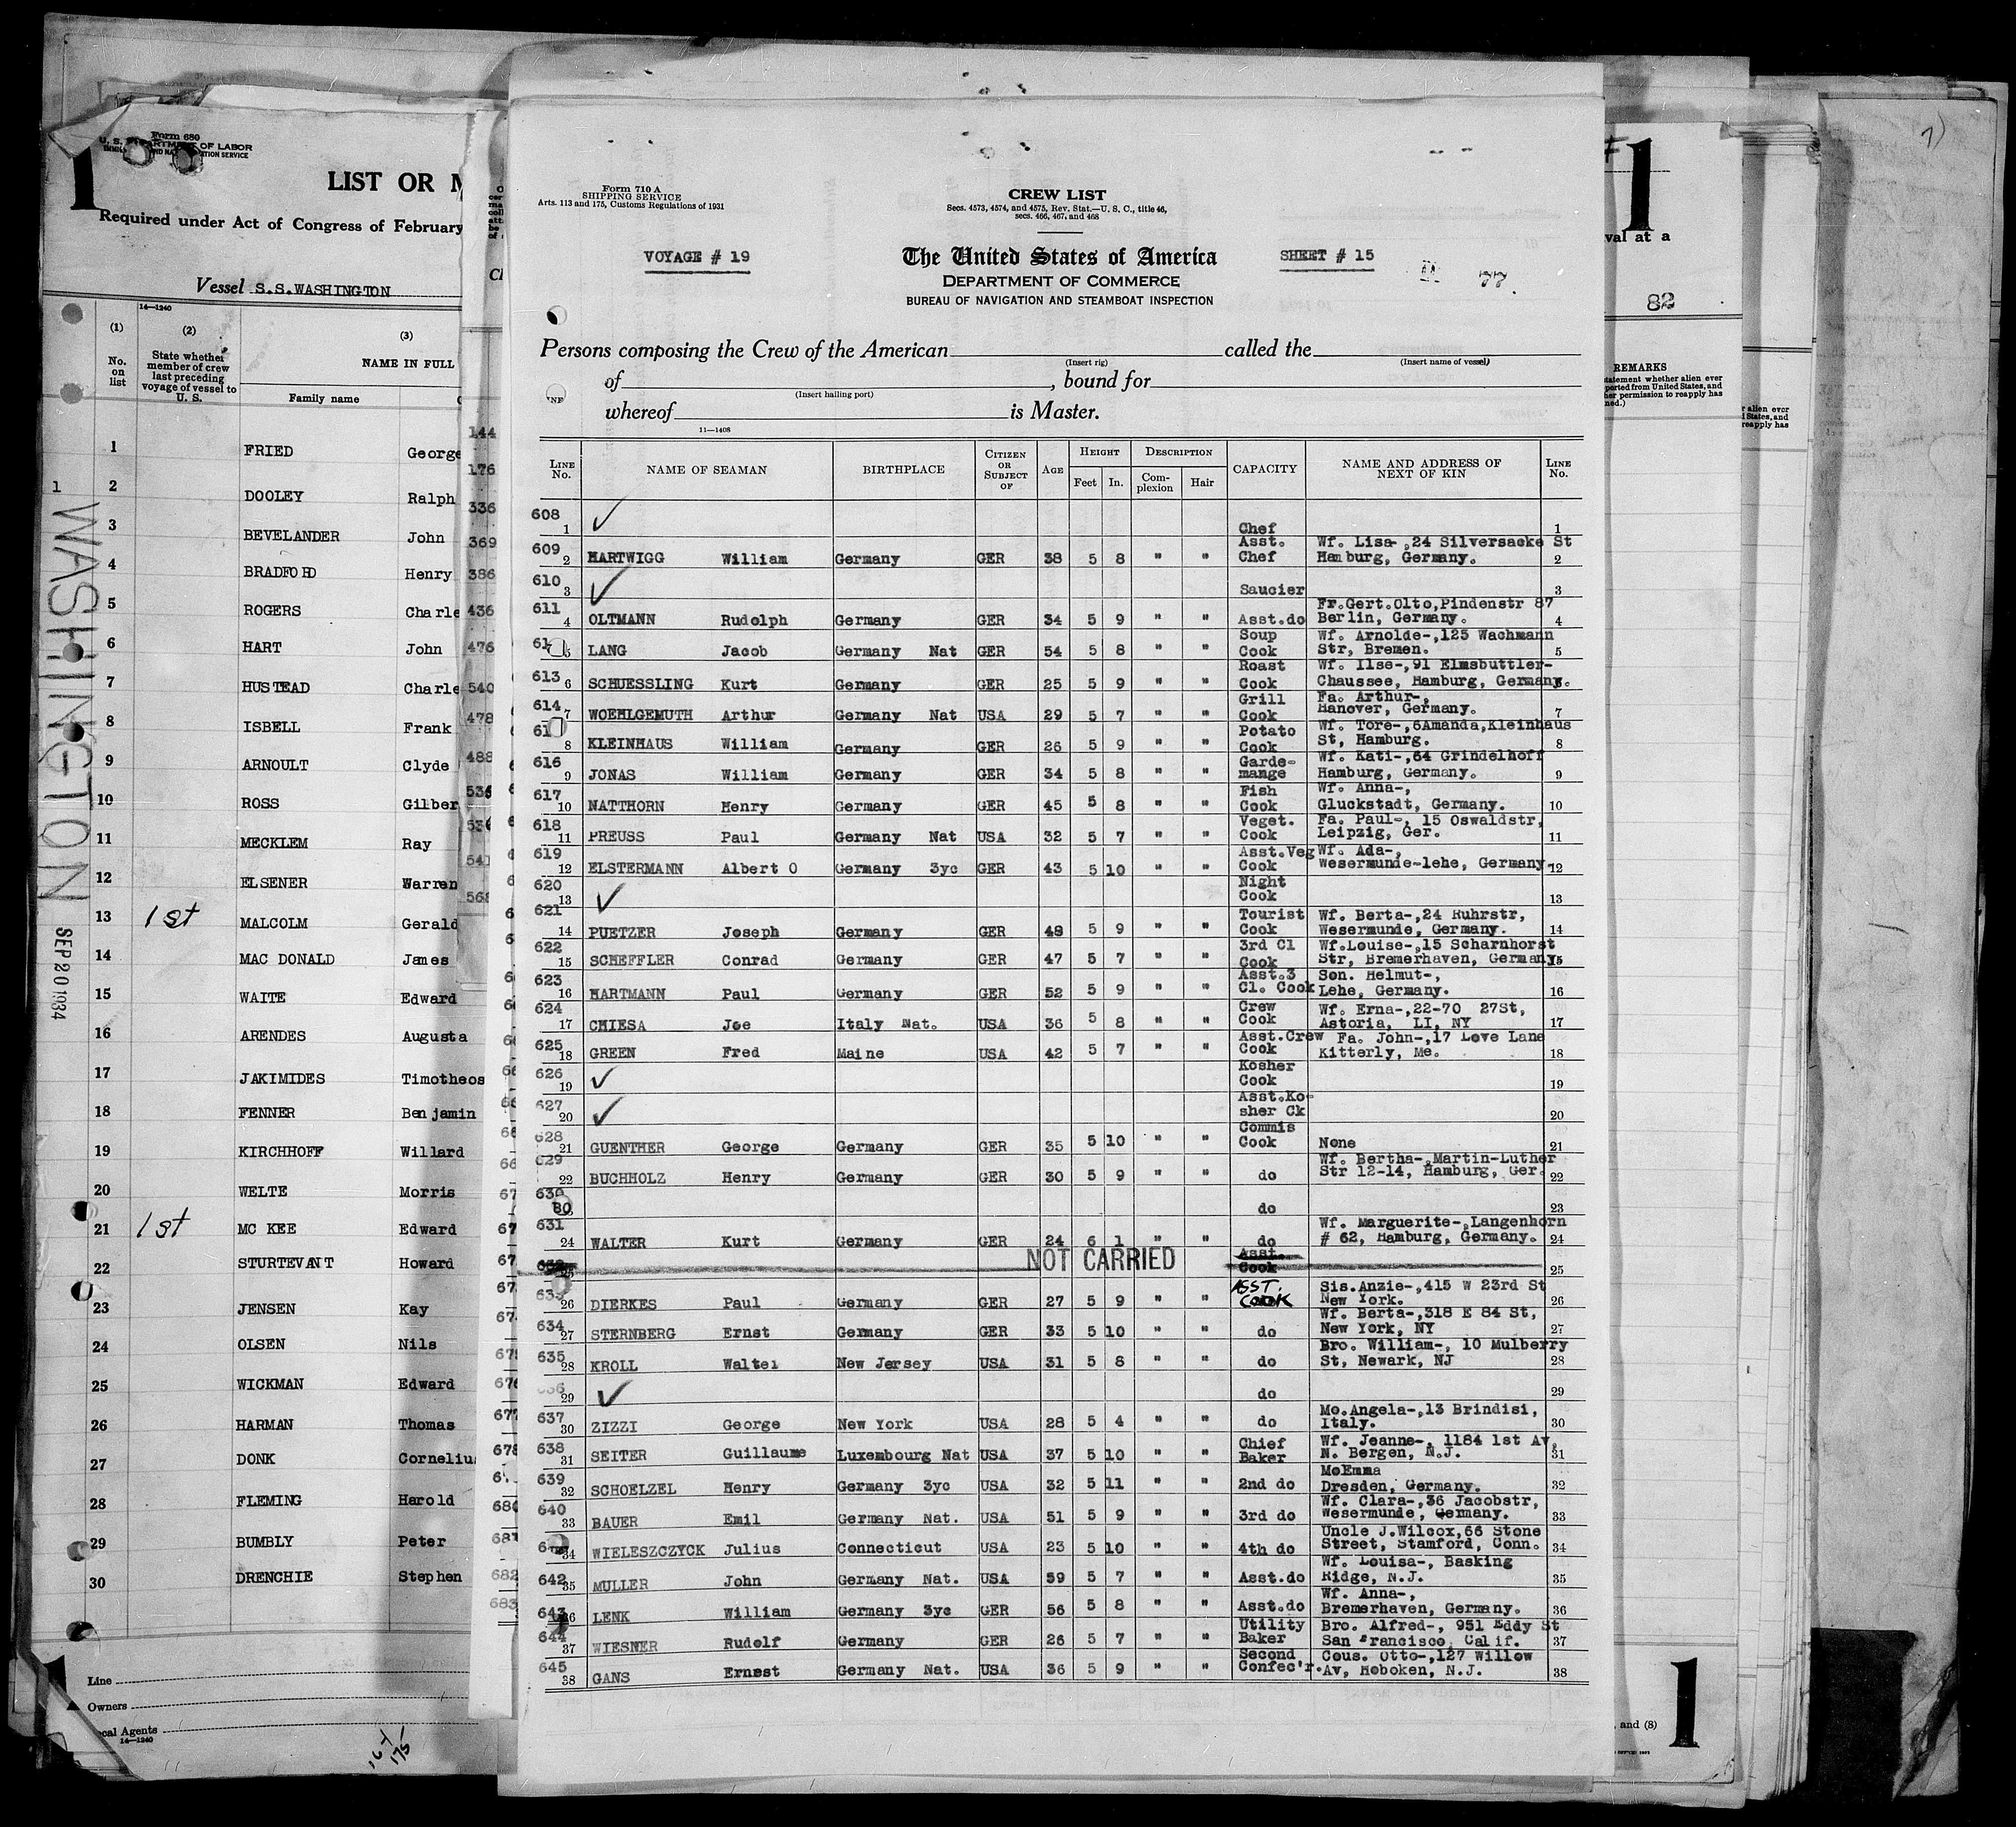 Form 680
U. S. DEPARTMENT OF LABOR
LIST OR M
Required under Act of Congress of February
Vessel S.S.WASHINGTON
14—1240
(1) (2) (3)
No. on list
State whether member of crew last preceding voyage of vessel to U. S.
NAME IN FULL
Family name
1 FRIED George
2 DOOLEY Ralph
3 BEVELANDER John
4 BRADFORD Henry
5 ROGERS Charle
6 HART John
7 HUSTEAD Charle
8 ISBELL Frank
9 ARNOULT Clyde
10 ROSS Gilber
11 MECKLEM Ray
12 ELSENER Warren
13 1st MALCOLM Gerald
14 MAC DONALD James
15 WAITE Edward
16 ARENDES Augusta
17 JAKIMIDES Timotheos
18 FENNER Benjamin
19 KIRCHHOFF Willard
20 WELTE Morris
21 1st MC KEE Edward
22 STURTEVANT Howard
23 JENSEN Kay
24 OLSEN Nils
25 WICKMAN Edward
26 HARMAN Thomas
27 DONK Cornelius
28 FLEMING Harold
29 BUMBLY Peter
30 DRENCHIE Stephen
Line
Owners
ocal Agents
14—1240
WASHINGTON
SEP 20 1934
Form 710 A
SHIPPING SERVICE
Arts. 113 and 175, Customs Regulations of 1931
CREW LIST
Secs. 4573, 4574, and 4575, Rev. Stat.—U. S. C., title 46,
secs. 466, 467, and 468
VOYAGE # 19
The United States of America
SHEET # 15
77
DEPARTMENT OF COMMERCE
BUREAU OF NAVIGATION AND STEAMBOAT INSPECTION
Persons composing the Crew of the American called the
(Insert rig) (Insert name of vessel)
of , bound for
(Insert hailing port)
whereof is Master.
11—1408
LINE No. NAME OF SEAMAN BIRTHPLACE CITIZEN OR SUBJECT OF AGE HEIGHT Feet In. DESCRIPTION Complexion Hair CAPACITY NAME AND ADDRESS OF NEXT OF KIN LINE No.
608 1 ✓ Chef 1
609 2 HARTWIGG William Germany GER 38 5 8 " " Asst. Chef Wf. Lisa-,24 Silversacke St Hamburg, Germany. 2
610 3 ✓ Saucier 3
611 4 OLTMANN Rudolph Germany GER 34 5 9 " " Asst.do Fr.Gert.Olto,Pindenstr 87 Berlin, Germany. 4
61 5 LANG Jacob Germany Nat GER 54 5 8 " " Soup Cook Wf. Arnolde-,125 Wachmann Str, Bremen. 5
613 6 SCHUESSLING Kurt Germany GER 25 5 9 " " Roast Cook Wf. Ilse-,91 Elmsbuttler-Chaussee, Hamburg, Germany. 6
614 7 WOEHLGEMUTH Arthur Germany Nat USA 29 5 7 " " Grill Cook Fa. Arthur-, Hanover, Germany. 7
61 8 KLEINHAUS William Germany GER 26 5 9 " " Potato Cook Wf. Tore-,6Amanda,Kleinhaus St, Hamburg. 8
616 9 JONAS William Germany GER 34 5 8 " " Garde-mange Wf. Kati-,64 Grindelhoff Hamburg, Germany. 9
617 10 NATTHORN Henry Germany GER 45 5 8 " " Fish Cook Wf. Anna-, Gluckstadt, Germany. 10
618 11 PREUSS Paul Germany Nat USA 32 5 7 " " Veget. Cook Fa. Paul-, 15 Oswaldstr, Leipzig, Ger. 11
619 12 ELSTERMANN Albert O Germany 3yc GER 43 5 10 " " Asst.Veg Cook Wf. Ada-, Wesermunde-lehe, Germany. 12
620 13 ✓ Night Cook 13
621 14 PUETZER Joseph Germany GER 48 5 9 " " Tourist Cook Wf. Berta-,24 Ruhrstr, Wesermunde, Germany. 14
622 15 SCHEFFLER Conrad Germany GER 47 5 7 " " 3rd Cl Cook Wf.Louise-,15 Scharnhorst Str, Bremerhaven, Germany. 15
623 16 HARTMANN Paul Germany GER 52 5 9 " " Asst.3 Cl. Cook Son. Helmut-, Lehe, Germany. 16
624 17 CHIESA Joe Italy Nat. USA 36 5 8 " " Crew Cook Wf. Erna-,22-70 27St, Astoria, LI, NY 17
625 18 GREEN Fred Maine USA 42 5 7 " " Asst.Crew Cook Fa. John-,17 Love Lane Kitterly, Me. 18
626 19 ✓ Kosher Cook 19
627 20 ✓ Asst.Ko-sher Ck 20
628 21 GUENTHER George Germany GER 35 5 10 " " Commis Cook None 21
629 22 BUCHHOLZ Henry Germany GER 30 5 9 " " do Wf. Bertha-,Martin-Luther Str 12-14, Hamburg, Ger. 22
630 do 23
631 24 WALTER Kurt Germany GER 24 6 1 " " do Wf. Marguerite-,Langenhorn # 62, Hamburg, Germany. 24
NOT CARRIED Asst. Cook 25
633 26 DIERKES Paul Germany GER 27 5 9 " " ASST. COOK Sis.Anzie-,415 W 23rd St New York. 26
634 27 STERNBERG Ernst Germany GER 33 5 10 " " do Wf. Berta-,318 E 84 St, New York, NY 27
635 28 KROLL Walter New Jersey USA 31 5 8 " " do Bro. William-, 10 Mulberry St, Newark, NJ 28
636 29 ✓ do 29
637 30 ZIZZI George New York USA 28 5 4 " " do Mo.Angela-,13 Brindisi, Italy. 30
638 31 SEITER Guillaume Luxembourg Nat USA 37 5 10 " " Chief Baker Wf. Jeanne-, 1184 1st Av, N. Bergen, N.J. 31
639 32 SCHOELZEL Henry Germany 3yc USA 32 5 11 " " 2nd do MoEmma Dresden, Germany. 32
640 33 BAUER Emil Germany Nat. USA 51 5 9 " " 3rd do Wf. Clara-,36 Jacobstr, Wesermunde, Germany. 33
34 WIELESZCZYCK Julius Connecticut USA 23 5 10 " " 4th do Uncle J.Wilcox,66 Stone Street, Stamford, Conn. 34
642 35 MULLER John Germany Nat. USA 59 5 7 " " Asst.do Wf. Louisa-, Basking Ridge, N.J. 35
643 36 LENK William Germany 3yc GER 56 5 8 " " Asst.do Wf. Anna-, Bremerhaven, Germany. 36
644 37 WIESNER Rudolf Germany GER 26 5 7 " " Utility Baker Bro. Alfred-, 951 Eddy St San Francisco, Calif. 37
645 38 GANS Ernest Germany Nat. USA 36 5 9 " " Second Confec'r. Cous. Otto-,127 Willow Av, Hoboken, N.J. 38
1
val at a
82
REMARKS
, and (8)
1